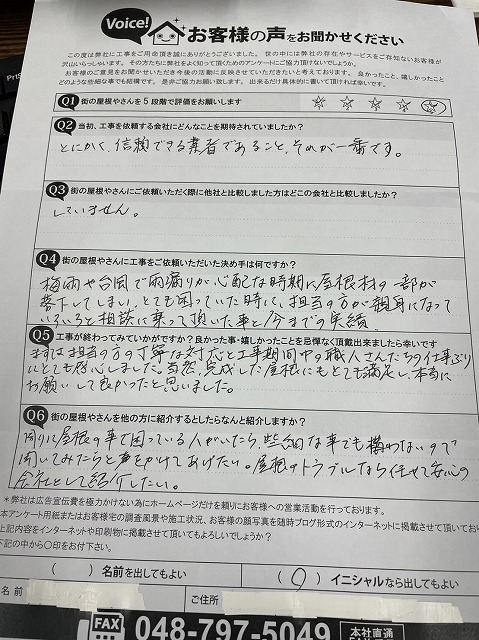 Voice!
お客様の声をお聞かせください
この度は弊社に工事をご用命頂き誠にありがとうございます。世の中には弊社の存在やサービスをご存知ないお客様が
沢山いらっしゃいます。その方たちに弊社をよく知って頂くためのアンケートにご協力頂けないでしょうか。
お客様のご意見をお聞かせいただき今後の活動に反映させていただきたいと考えております。良かったこと、嬉しかったこと
どのような些細な事でも結構です。是非ご協力お願い致します。出来るだけ具体的に書いて頂ければ幸いです。
Q1 街の屋根やさんを5段階で評価をお願いします
Q2 当初、工事を依頼する会社にどんなことを期待されていましたか?
とにかく、信頼できる業者であること、それが一番です。
Q3 街の屋根やさんにご依頼いただく際に他社と比較しました方はどこの会社と比較しましたか?
していません。
Q4 街の屋根やさんに工事をご依頼いただいた決め手は何ですか?
梅雨や台風で雨漏りが心配な時期に屋根材の一部が
落下してしまい、とても困っていた時に、担当の方が親身になって
いろいろと相談に乗って頂いた事と今までの実績。
Q5 工事が終わってみていかがですか?良かった事・嬉しかったことを忌憚なく頂戴出来ましたら幸いです
まずは担当の方の丁寧な対応と工事期間中の職人さんたちの仕事ぶり
にとても感心しました。当然、完成した屋根にもとても満足し、本当に
お願いして良かったと思いました。
Q6 街の屋根やさんを他の方に紹介するとしたらなんと紹介しますか?
周りに屋根の事で困っている人がいたら、些細な事でも構わないので
聞いてみたらと声をかけてあげたい。屋根のトラブルなら任せて安心の
会社として紹介したい。
*弊社は広告宣伝費を極力かけない為にホームページだけを頼りにお客様への営業活動を行っております。
本アンケート用紙またはお客様宅の調査風景や施工状況、お客様の顔写真を随時ブログ形式のインターネットに掲載させて頂いてお
上記内容をインターネットや印刷物に掲載させて頂いてもよろしいでしょうか?
下記の中から○印をお付下さい。
( )名前を出してもよい
(○)イニシャルなら出してもよい
名前
ご住所
FAX 048-797-5049 本社直通